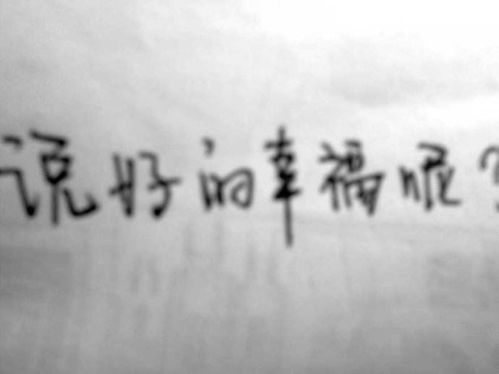 说好的幸福呢?